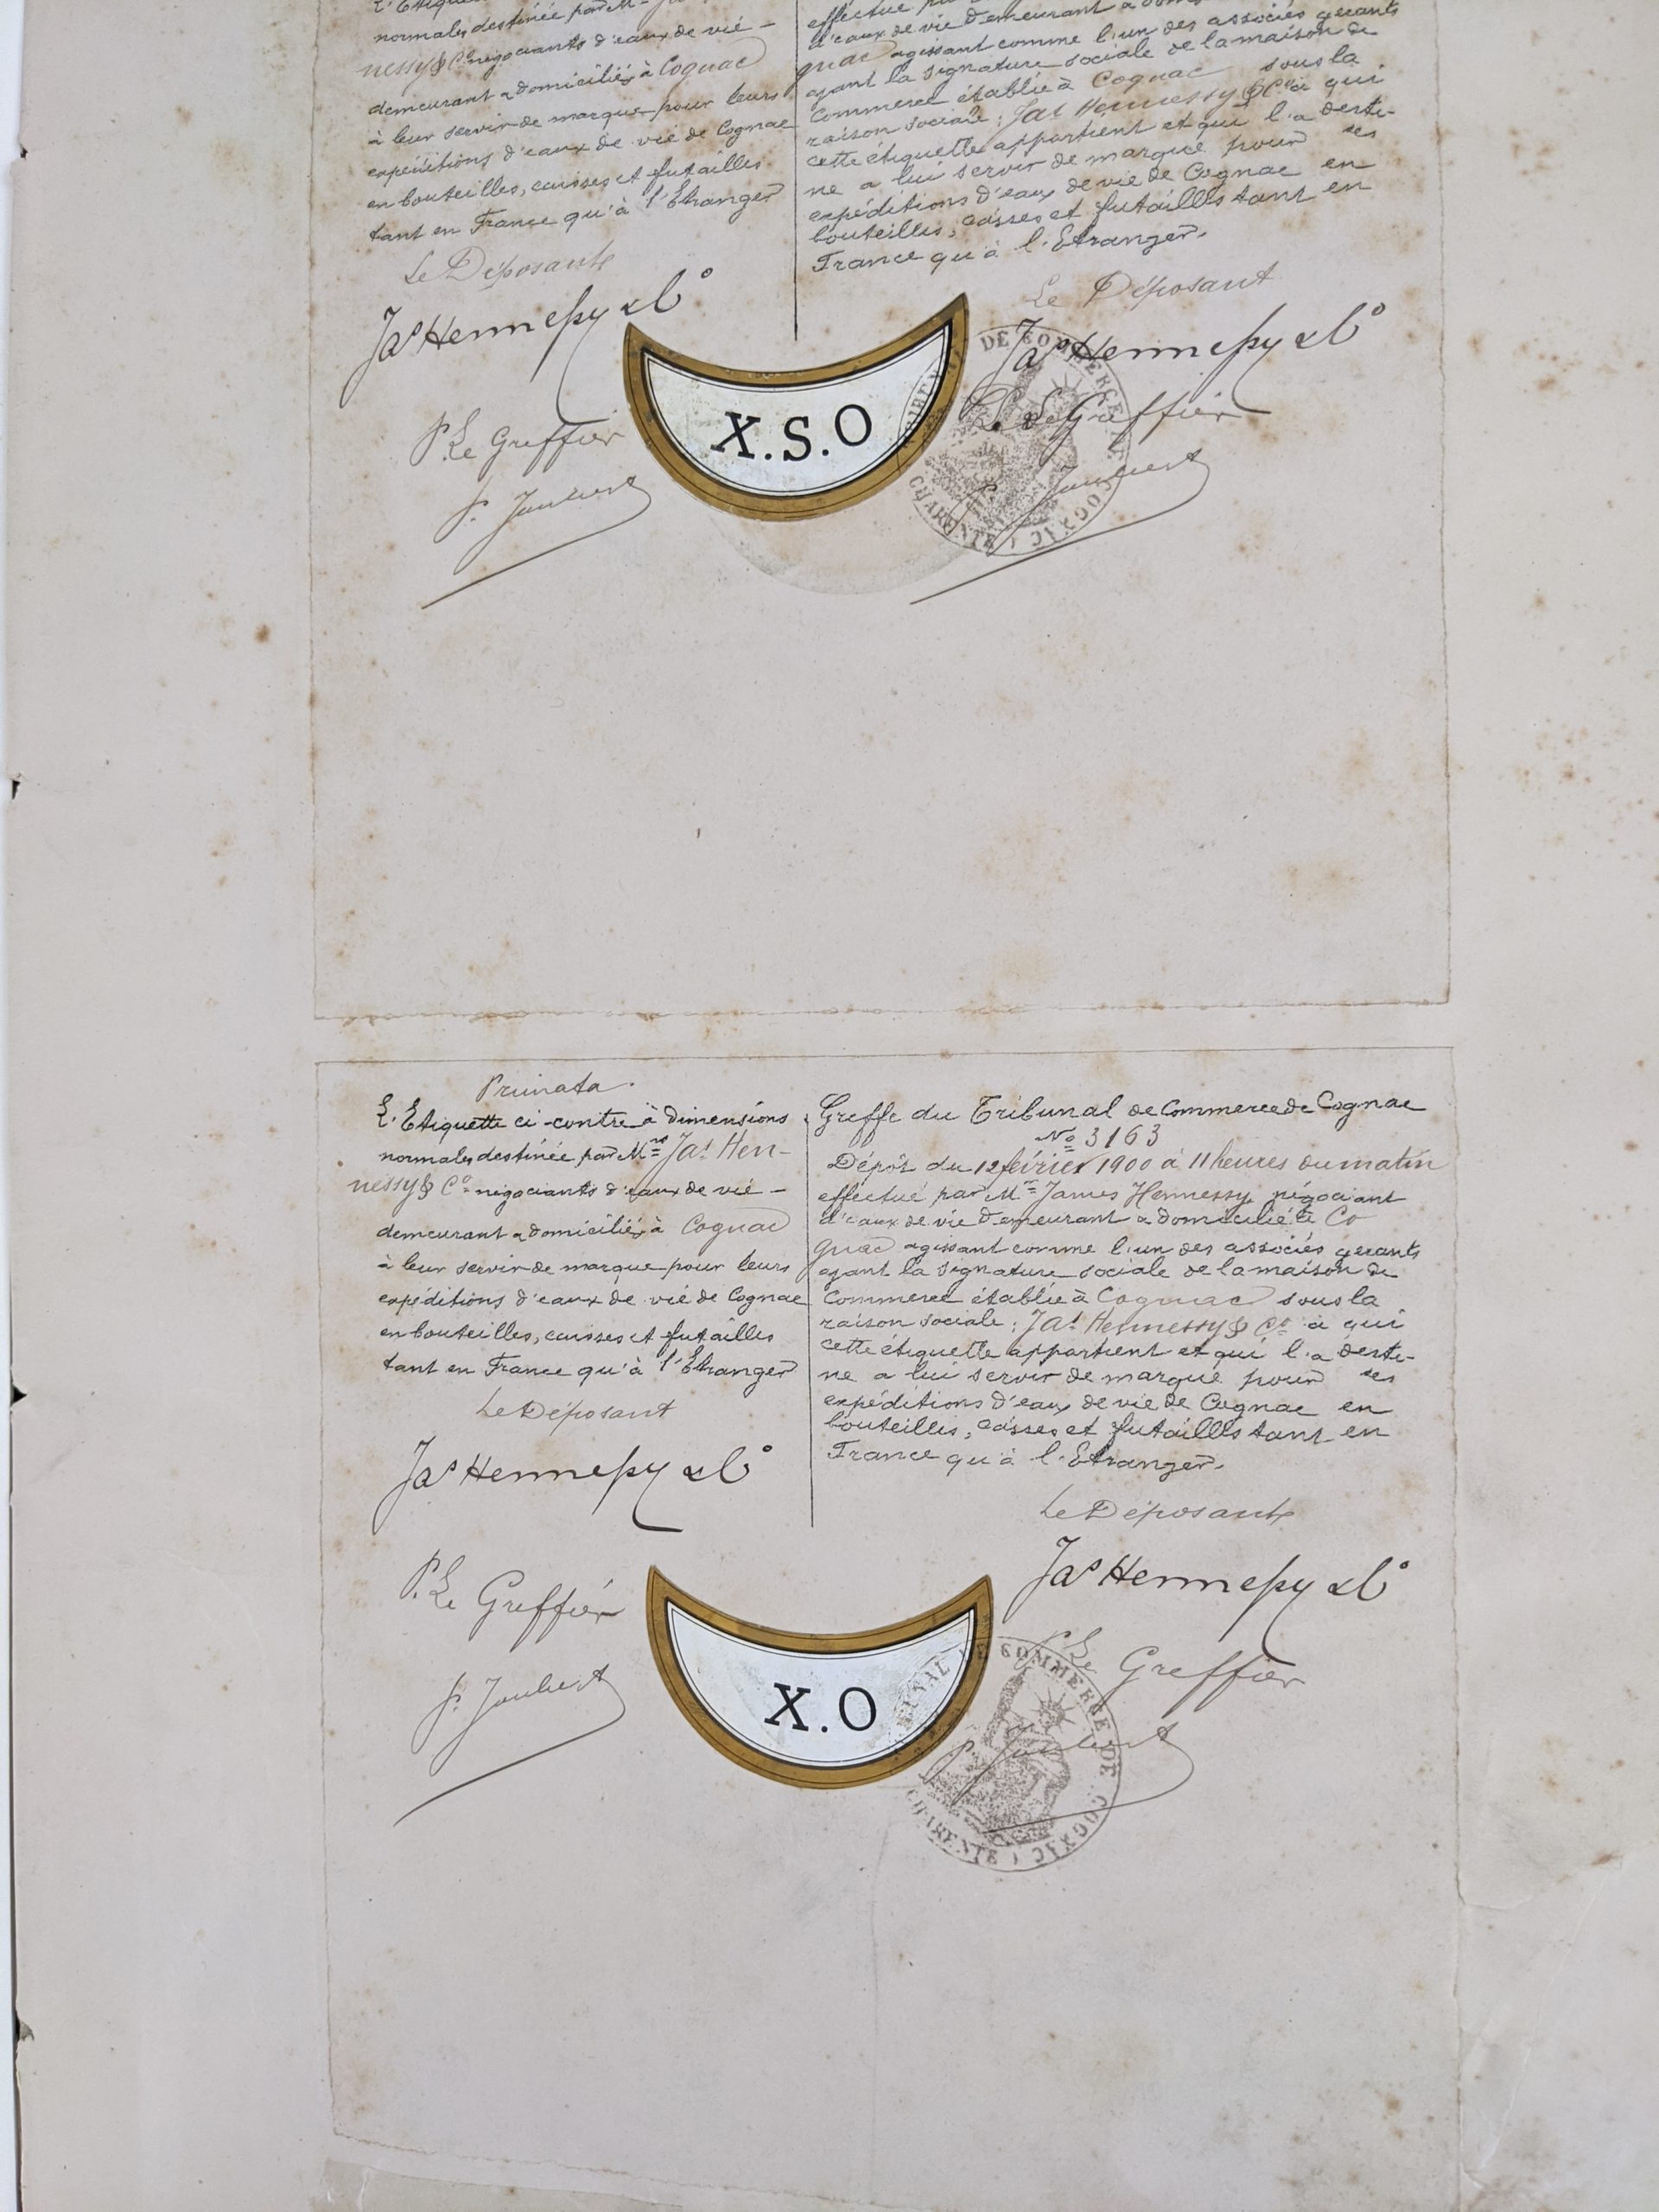 L'Etiquette
normales destinée par M
nessy & Co négociants d'eaux de vie -
demeurant & domiciliés à Cognac
à leur servir de marque pour leurs
expéditions d'eaux de vie de Cognac
en bouteilles, caisses et futailles
tant en France qu'à l'Etranger
Le Déposant
Jas Hennessy & Co
P. Le Greffier
P. Joubert
effectué par
d'eaux de vie demeurant &
gnac agissant comme l'un des associés gerants
ayant la signature sociale de la maison de
Commerce établie à Cognac sous la
raison sociale : Jas Hennessy & Co à qui
cette étiquette appartient et qui l'a desti-
ne a lui servir de marque pour ses
expéditions d'eaux de vie de Cognac en
bouteilles, caisses et futailles tant en
France qu'à l'Etranger.
Le Déposant
Jas Hennessy & Co
P. Le Greffier
P. Joubert
X.S.O
DE COMMERCE DE COGNAC
CHARENTE
Primata.
L'Etiquette ci-contre à dimensions
normales destinée par Mrs Jas Hen-
nessy & Co négociants d'eaux de vie -
demeurant & domiciliés à Cognac
à leur servir de marque pour leurs
expéditions d'eaux de vie de Cognac
en bouteilles, caisses et futailles
tant en France qu'à l'Etranger
Le Déposant
Jas Hennessy & Co
P. Le Greffier
P. Joubert
Greffe du Tribunal de Commerce de Cognac
No 3163
Dépôt du 12 février 1900 à 11 heures du matin
effectué par Mr James Hennessy négociant
d'eaux de vie demeurant & domicilié à Co
gnac agissant comme l'un des associés gerants
ayant la signature sociale de la maison de
Commerce établie à Cognac sous la
raison sociale : Jas Hennessy & Co à qui
cette étiquette appartient et qui l'a desti-
ne a lui servir de marque pour ses
expéditions d'eaux de vie de Cognac en
bouteilles, caisses et futailles tant en
France qu'à l'Etranger.
Le Déposant
Jas Hennessy & Co
P. Le Greffier
P. Joubert
X.O
TRIBUNAL DE COMMERCE DE COGNAC
CHARENTE